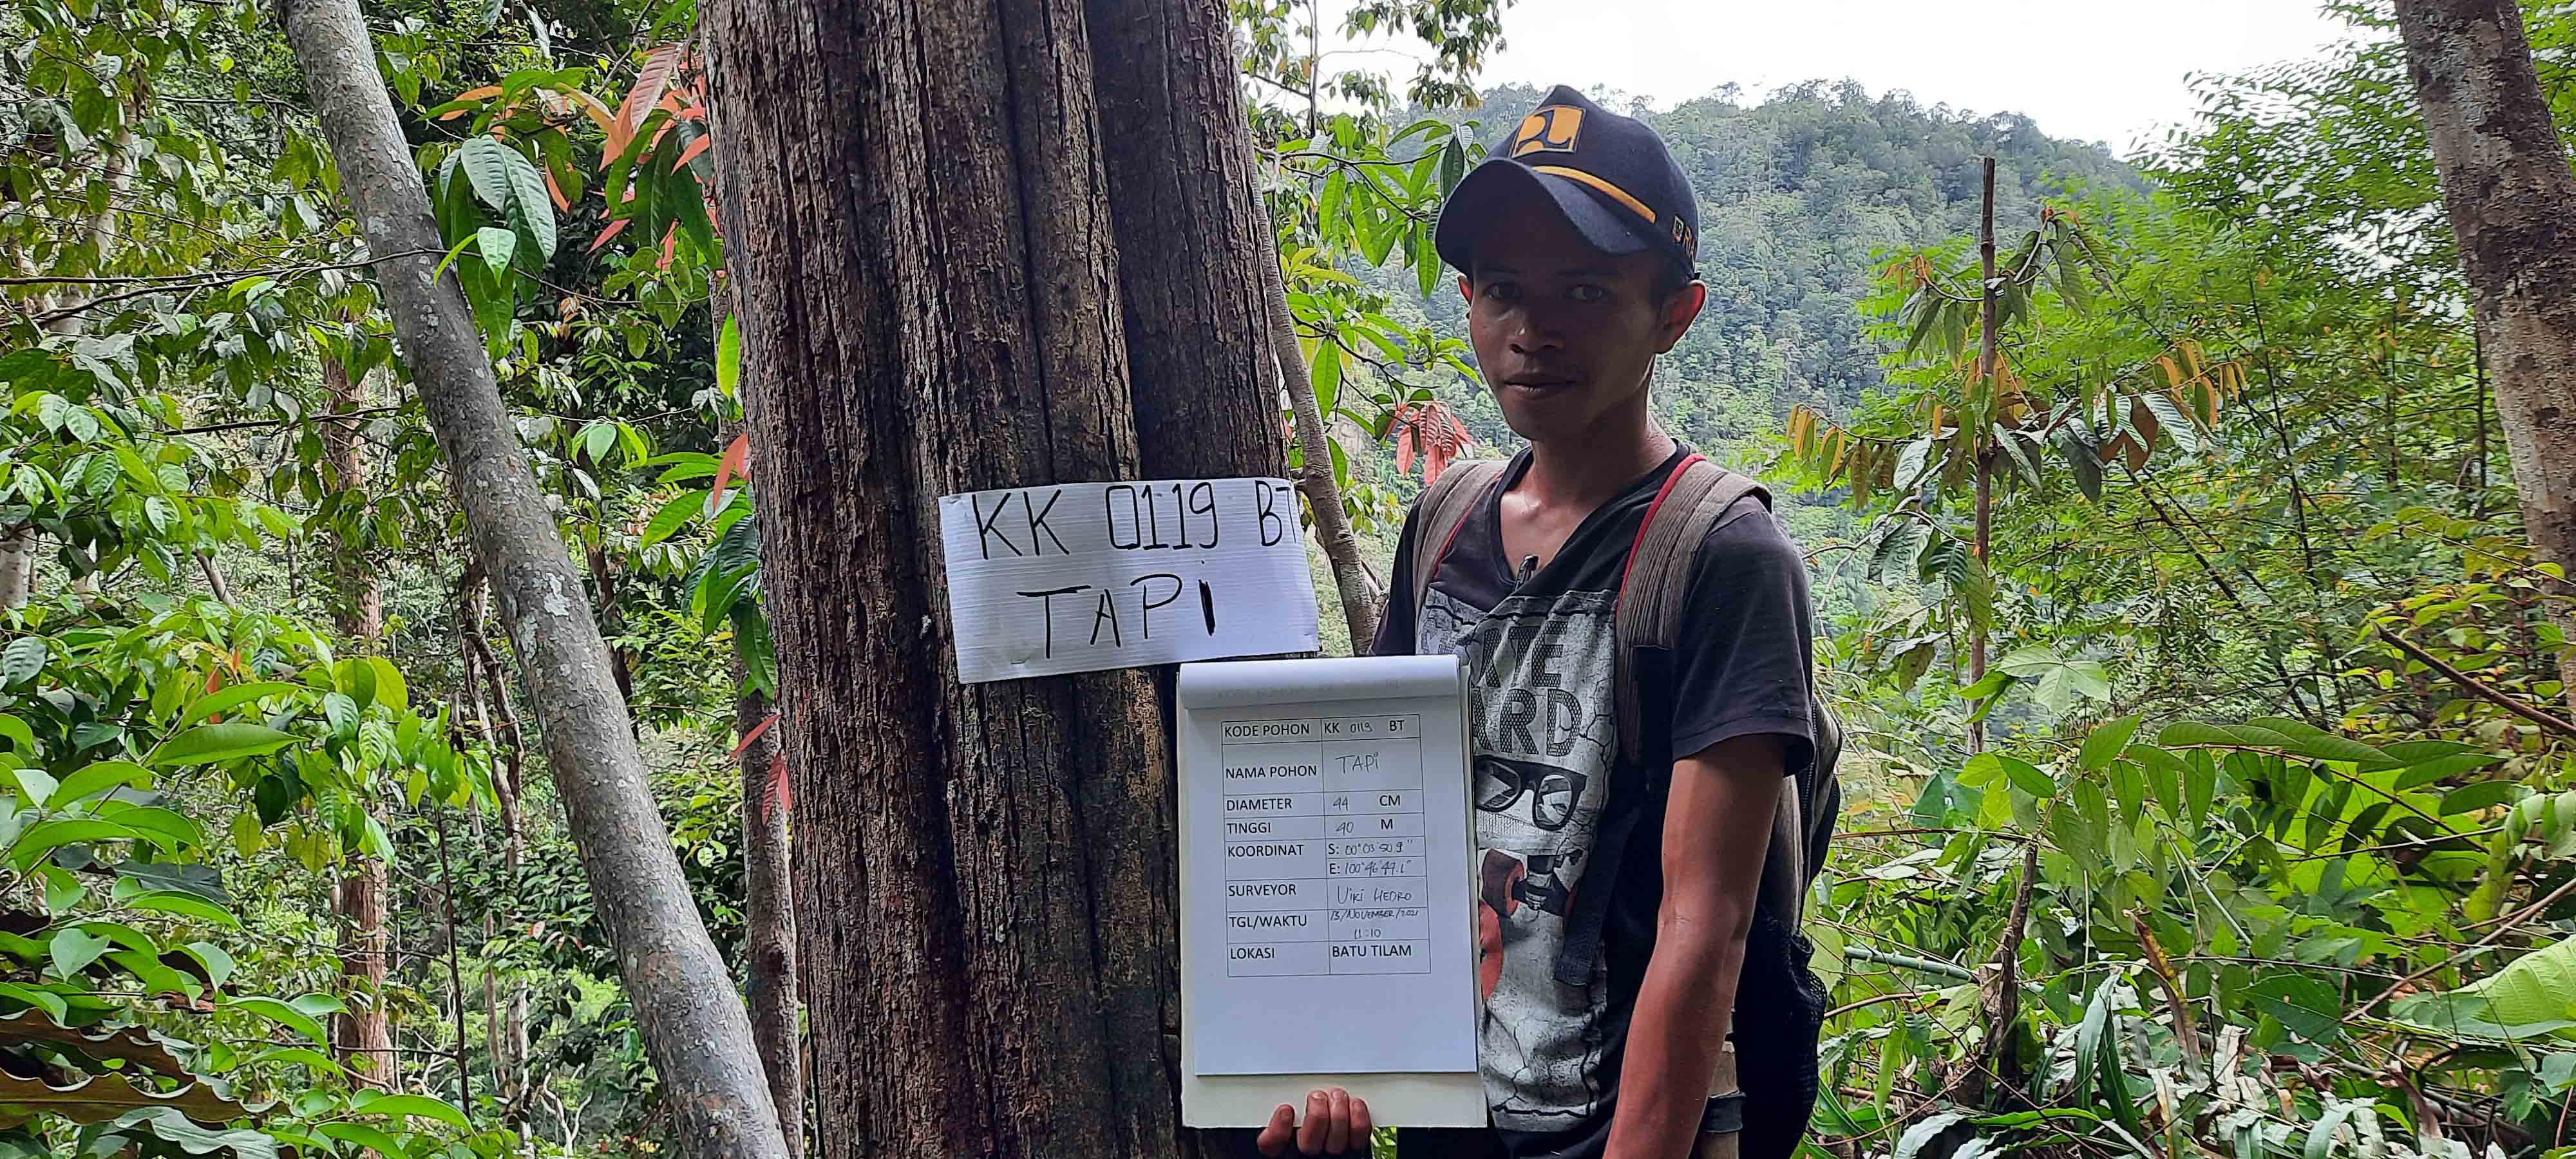 KK 0119 BT
TAPi
KODE POHON KK 0119 BT
NAMA POHON TAPi
DIAMETER 44 CM
TINGGI 40 M
KOORDINAT S: 00°03'50.9"
E: 100°46'44.1"
SURVEYOR Uiki HEDRO
TGL/WAKTU 13/NOVEMBER/2021
11:10
LOKASI BATU TILAM